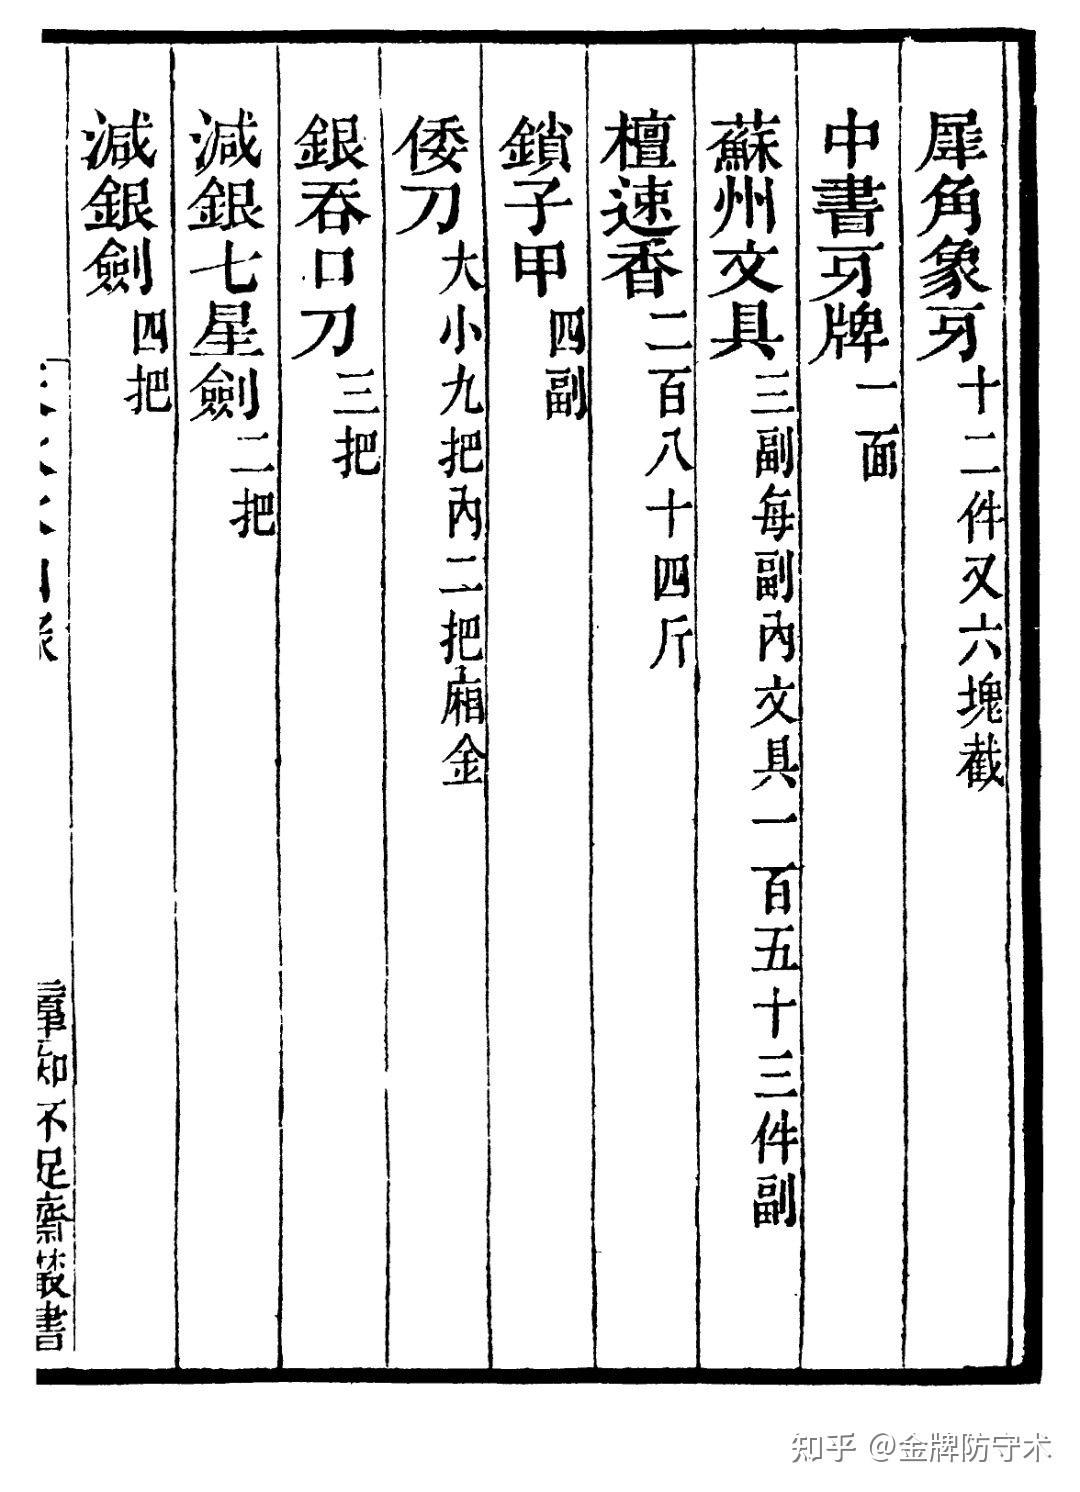 犀角象牙十二件又六塊截
中書牙牌一面
蘇州文具三副每副內文具一百五十三件副
檀速香二百八十四斤
鎖子甲四副
倭刀大小九把內二把廂金
銀吞口刀三把
減銀七星劍二把
減銀劍四把
知不足齋叢書
知乎 @金牌防守术